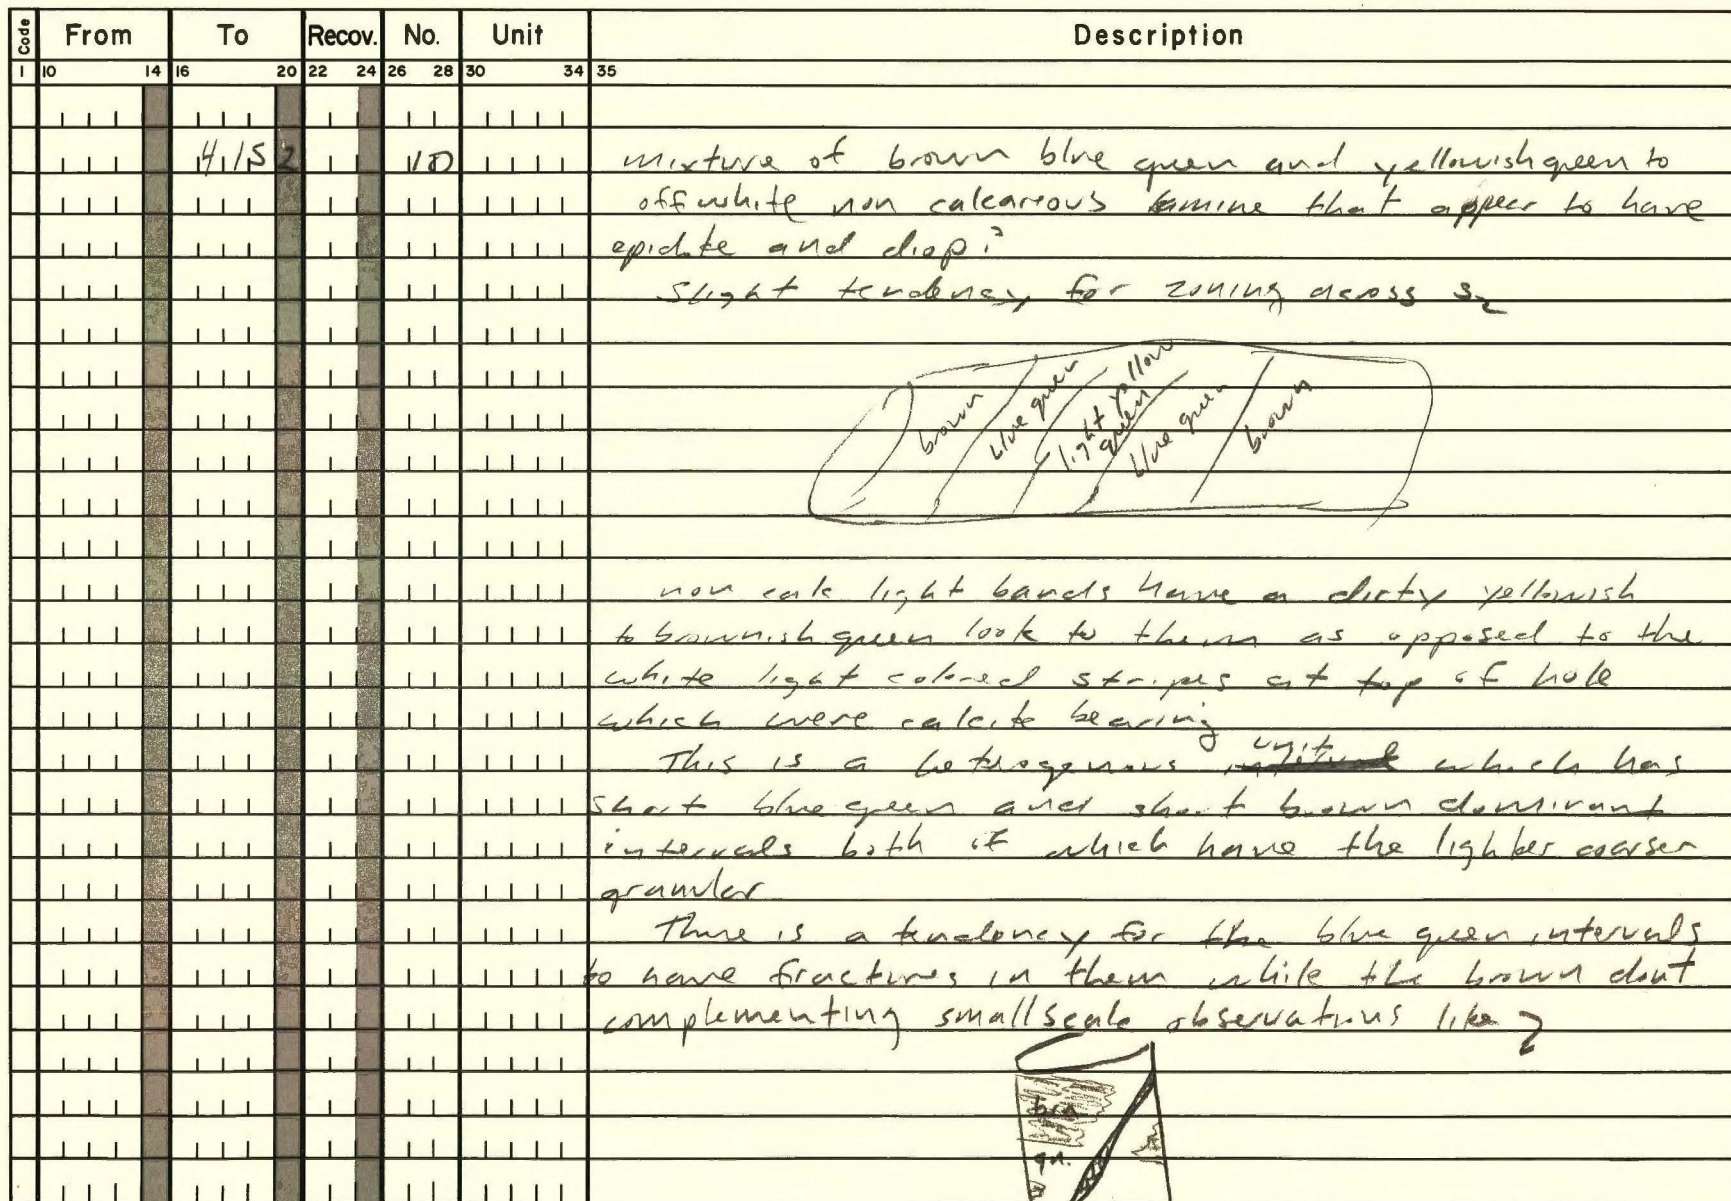 Code From To Recov. No. Unit Description
1 10 14 16 20 22 24 26 28 30 34 35
4152 10 mixture of brown blue green and yellowish green to
off white non calcareous that appear to have
epidote and diop?
slight tendency for zoning across S2
brown blue green light yellow green blue green brown
non calc light bands have a dirty yellowish
to brownish green look to them as opposed to the
white light colored stripes at top of hole
which were calcite bearing
This is a heterogenous unit which has
short blue green and short brown dominant
intervals both of which have the lighter coarser
granular
There is a tendency for the blue green intervals
to have fractures in them while the brown dont
complementing smallscale observations like
brn
gn.